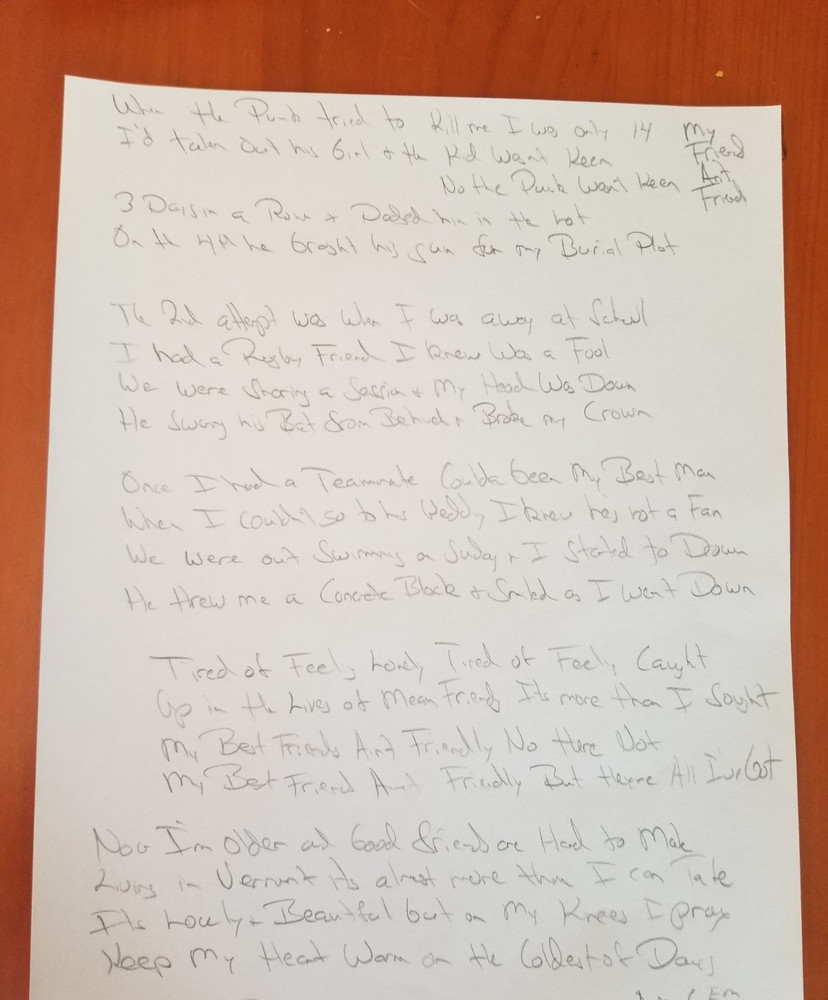 When the Punk tried to Kill me I was only 14
My Friend Aint Friend
I'd taken Out his Girl + the Kid Wasn't Keen
No the Punk Wasn't Keen
3 Days in a Row + Dodged him in the hot
On the 4th he broght his gun for my Burial Plot
The 2nd attempt was when I was away at School
I had a Rugby Friend I knew Was a Fool
We were Sharing a Session + My Head Was Down
He Swung his Bat from Behind + Broke my Crown
Once I had a Teammate Coulda been My Best Man
When I couldn't go to his Wedding I knew he's not a Fan
We were out Swimming on Sunday + I Started to Drown
He threw me a Concrete Block + Smiled as I went Down
Tired of Feeling Lonely Tired of Feeling Caught
Up in the Lives of Mean Friends Its more than I Sought
My Best Friends Aint Friendly No There Not
My Best Friend Aint Friendly But There All I've Got
Now I'm Older and Good friends are Hard to Make
Living in Vermont its almost more than I can Take
Its Lonely + Beautiful but on My Knees I pray
Keep My Heart Warm on the Coldest of Days